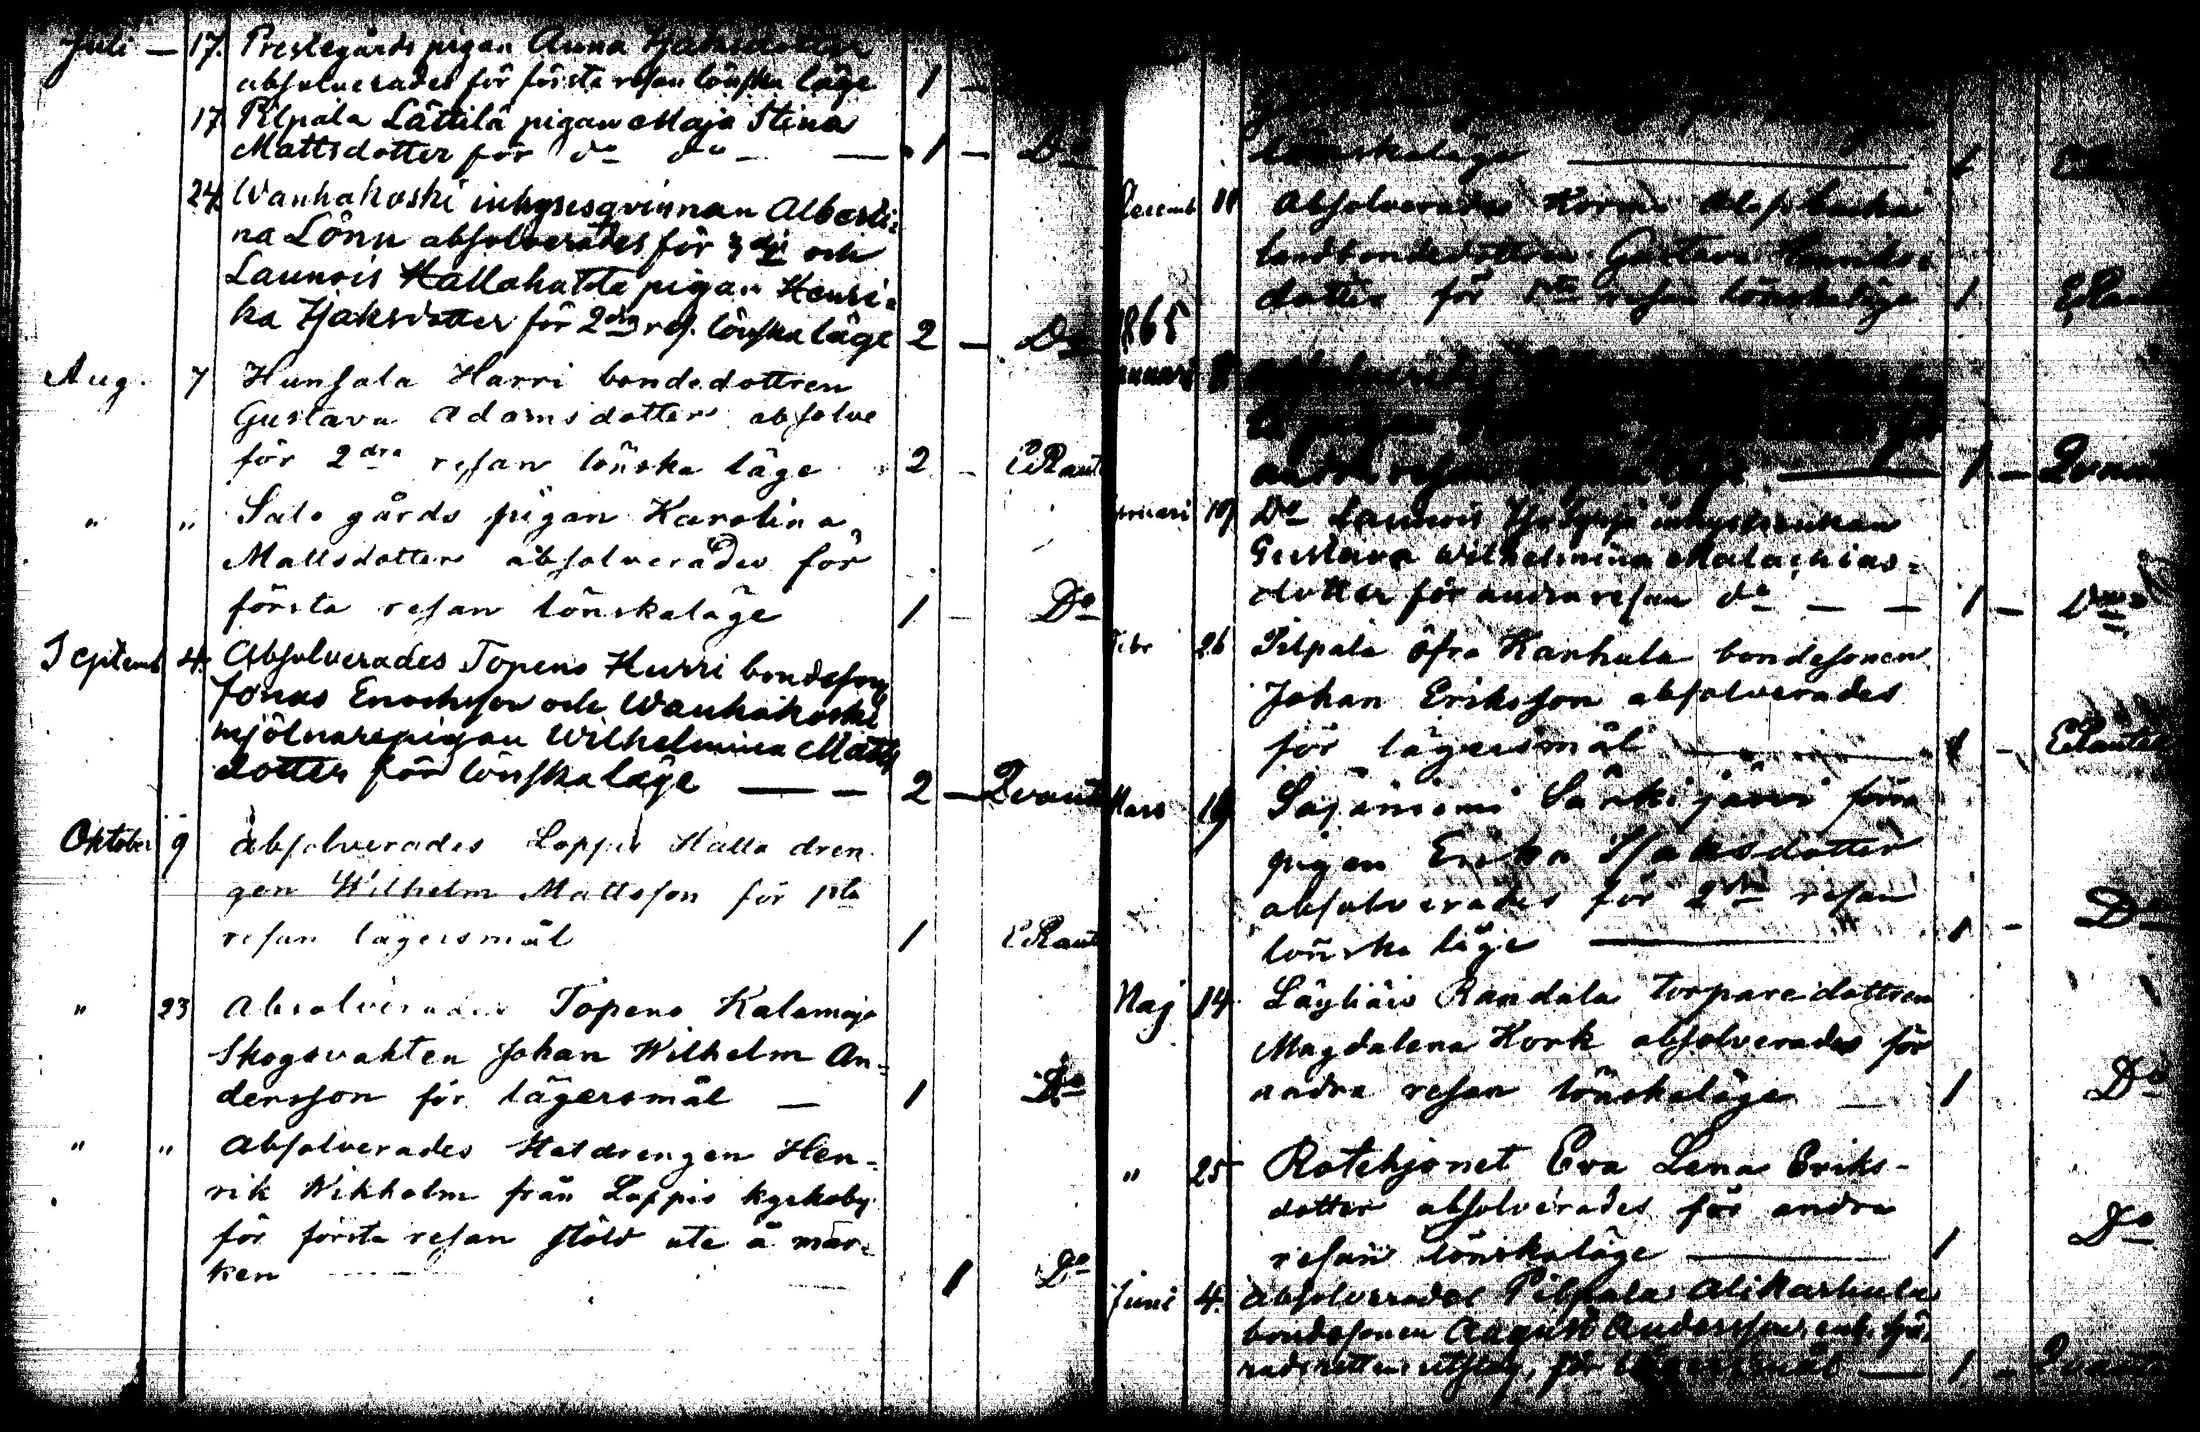 Juli — 17. Prestegårds pigan Anna Isaksdotter
absolverades för första resan lönska läge 1 —
17 Pilpala Lättilä pigan Maja Stina
Mattsdotter för do do — — 1 — Do
24. Wanhakoski inhysesqvinnan Alberti=
na Lönn absolverades för 3dje och
Launois Hallahatta pigan Henri=
ka Isaksdotter för 2dra res. lönska läge 2 — Do
Aug. 7 Hunsala Harri bondedottren
Gustava Adamsdotter absolve
för 2dra resan lönska läge 2 - ERaut
" " Salo gårds pigan Karolina
Mattsdotter absolverades för
första resan lönskaläge 1 — Do
Septemb 4. Absolverades Topeno Hurri bondeson
Jonas Enochsson och Wanhakoski
mjölnarepigan Wilhelmina Matts
dotter för lönskaläge — — 2 — Qvant
Oktober 9 absolverades Loppis Halla dren
gen Wilhelm Mattsson för 1sta
resan lägersmål 1 ERaut
" 23 Absolverades Topeno Kalamaja
Skogsvakten Johan Wilhelm An=
dersson för lägersmål — 1 Do
" " Absolverades Statdrengen Hen=
rik Wikholm från Loppis kyrkoby
för första resan stöld ute å mar=
ken 1 Do
lönskaläge — 1
Decemb 11 Absolverades
landbondedottren Gustava
dotter för 1sta resan lönskaläge 1 ERaut
1865
Januari 8
andra resan — 1 — Qvant
Februari 19 Do Launois inhysespigan
Gustava Wilhelmina Malachias=
dotter för andra resan do — — 1 — Do
Febr 26 Pilpala öfra Karhula bondesonen
Johan Eriksson absolverades
för lägersmål — 1 — ERautel
Mars 19 Sajaniemi Särkijärvi förra
pigan Erika Isaksdotter
absolverades för 2dra resan
lönska läge — 1 - Do
Maj 14. Läyliäis Randala torparedottren
Magdalena Kork absolverades för
andra resan lönskaläge — 1 Do
" 25 Rotehjonet Eva Lena Eriks-
dotter absolverades för andra
resan lönskaläge — 1 Do
Juni 4. absolverades Pilpala Alikarhula
bondesonen August Andersson, enl. hä=
radsrättens utslag, för lägersmål — 1 — Qvant